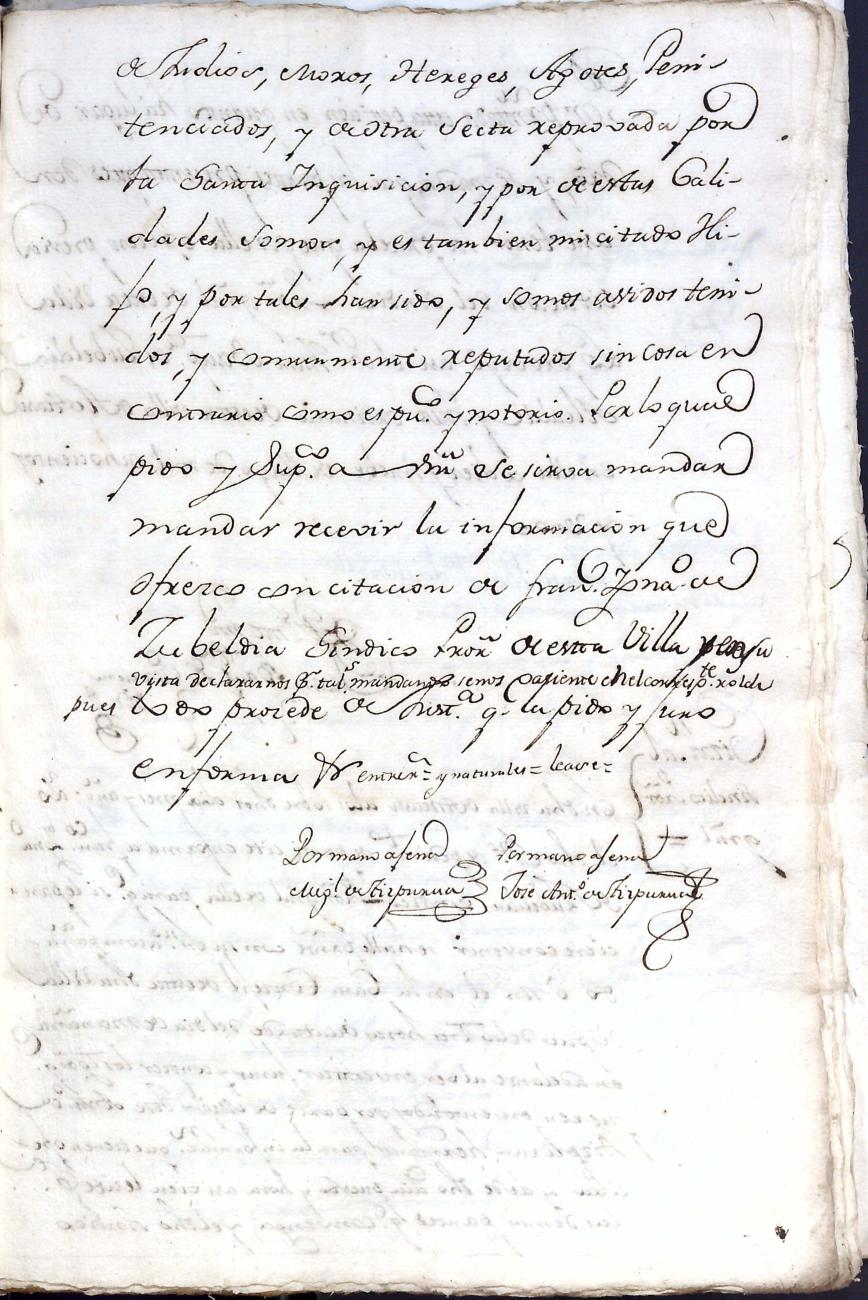 de Judios, Moros, Hereges, Agotes, Peni-
tenciados, y de otra Secta reprovada por
la Santa Inquisicion, y por de estas Cali-
dades somos, y es tambien mi citado Hi-
jo, y por tales han sido, y somos avidos teni-
dos, y comunmente reputados sin cosa en
contrario como es pu.co y notorio. Por lo qual
pido y Sup.co a Vm se sirva mandar
mandar recevir la informacion que
ofrezco con citacion de fran.co Igna.o de
Zubeldia Sindico Pror de esta Villa y en su
vista declararnos p.r tal.s mandando se nos
pues todo procede de Just.a q.e la pido y juro
en forma entrer.s = y naturales = leave =
Por mano agena
Migl. de Yzpurua
Por mano agena
José Ant.o de Yzpurua